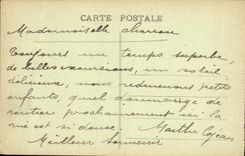 CARTE POSTALE
Mademoiselle
Toujours un temps superbe,
de belles excursions, un soleil
délicieux, nous redevenons petits
enfants, quel dommage de
rentrer prochainement ici la
vie est si douce. Marthe
Meilleur souvenir